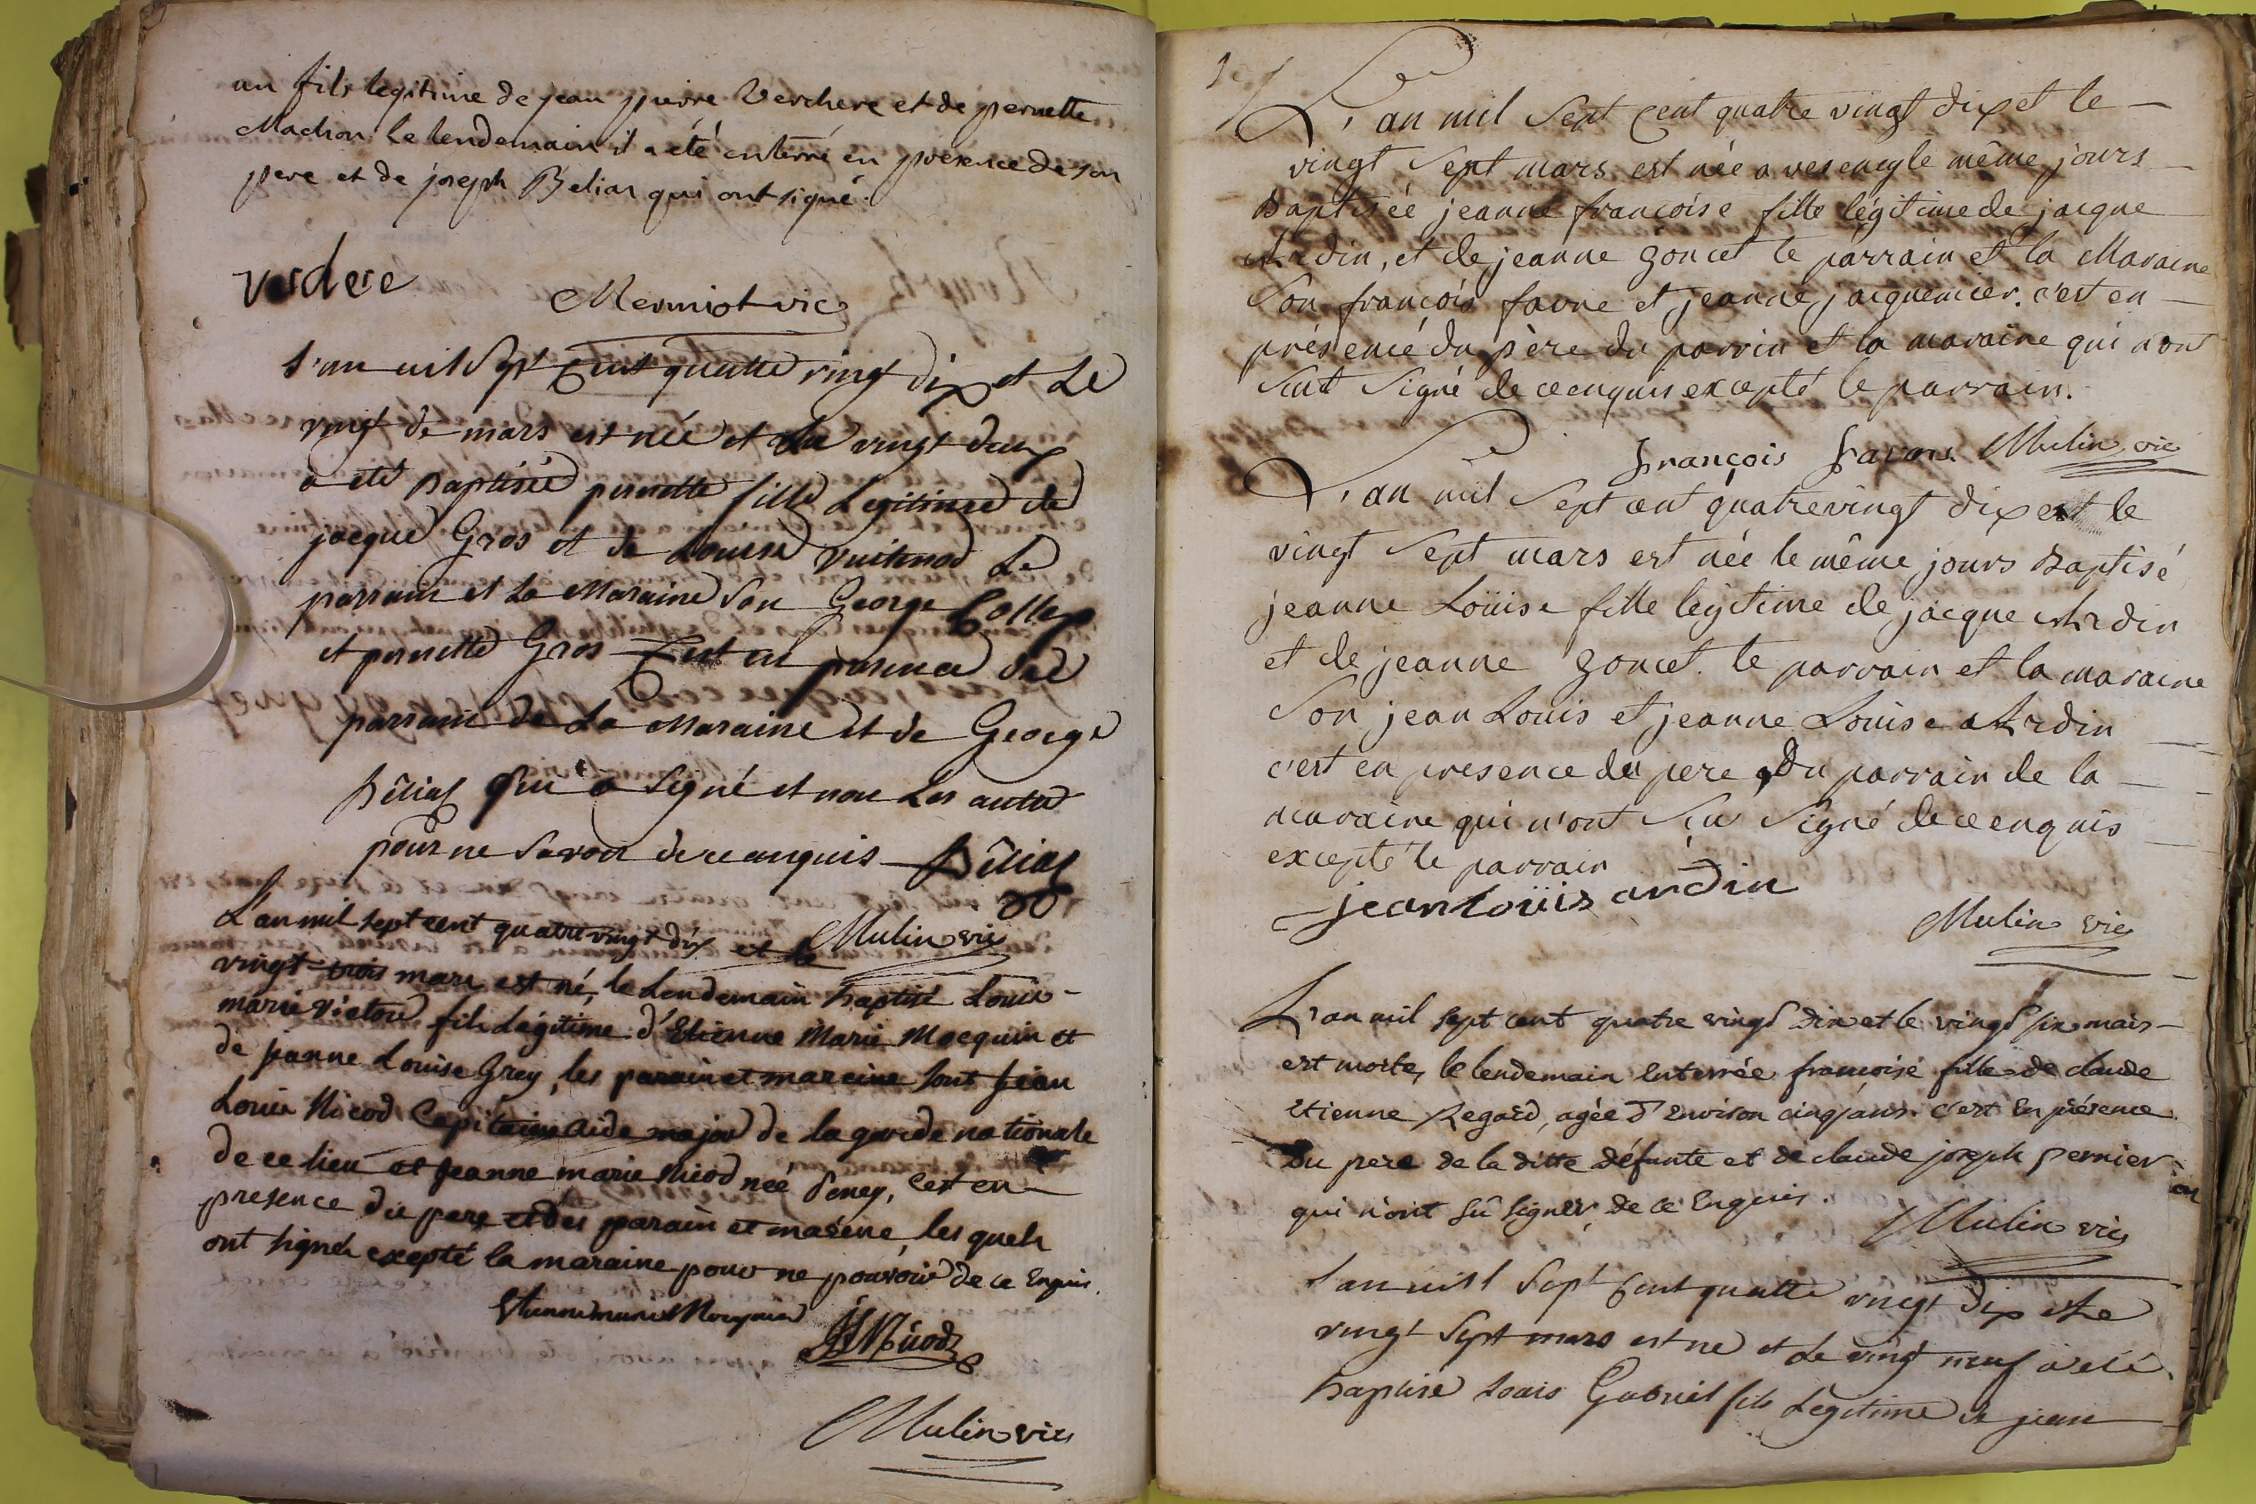 un fils legitime de jean pierre Verchere et de pernette
Machon le lendemain il a eté enterré en présence de son
pere et de joseph Bêlias qui ont signé.
verchere
Mermiot vic
L'an mil Sept Cent quatre vingt dix et Le
vingt de mars est née et le vingt deux
a eté Baptisée pernette fille Legitime de
jacque Gros et de Louise Vuitnod Le
parrain et la Maraine Son George Collex
et pernette Gros C'est en presence du
parrain de La Maraine et de George
Bêlias qui a Signé et non Les autres
pour ne Savoir de ce enquis Bêlias
L'an mil sept cent quatre vingt dix et le Mulin vic
vingt trois mars est né, le lendemain baptisé Louis
marie Victor fils Légitime d'Etienne Marie Mocquin et
de jeanne Louise Grey, les parain et maraine sont jean
Louis Nicod Capitaine aide major de la garde nationale
de ce lieu et jeanne marie Nicod née Peney, c'est en
presence du pere et des parain et marène, les quels
ont signés excepté la maraine pour ne pouvoir de ce Enquis.
Etienne marie Mocquin
JL Nicod
Mulin vic
L'an mil Sept Cent quatre vingt dix et le
vingt Sept mars est née a vesency le même jours
Baptisée jeanne françoise fille légitime de jacque
Ardin, et de jeanne Goncet le parrain et la Maraine
Son françois favre et jeanne jacquemier. c'est en
présence du père du parrin et la maraine qui n'ont
Seut Signé de ce enquis excepté le parrain.
françois favre Mulin vic
L'an mil Sept cent quatre vingt dix et le
vingt Sept mars est née le même jours Baptisé
jeanne Loüise fille legitime de jacque Ardin
et de jeanne Goncet. le parrain et la maraine
Son jean Louis et jeanne Louise Ardin
c'est en presence du pere Du parrain de la
maraine qui n'ont Seu Signé de ce enquis
excepté le parrain
jean loüis ardin
Mulin vic
L'an mil sept cent quatre vingt dix et le vingt six mars
est morte, le lendemain Enterrée françoise fille de claude
Etienne Regard, agée d'Environ cinq ans. c'est En présence
Du pere de la ditte défunte et de claude joseph Pernier
qui n'ont sû signer de ce Enquis.
Mulin vic
L'an mil Sept Cent quatre vingt dix et Le
vingt Sept mars est né et Le vingt neuf a eté
baptisé Louis Gabriel fils Legitime de jean